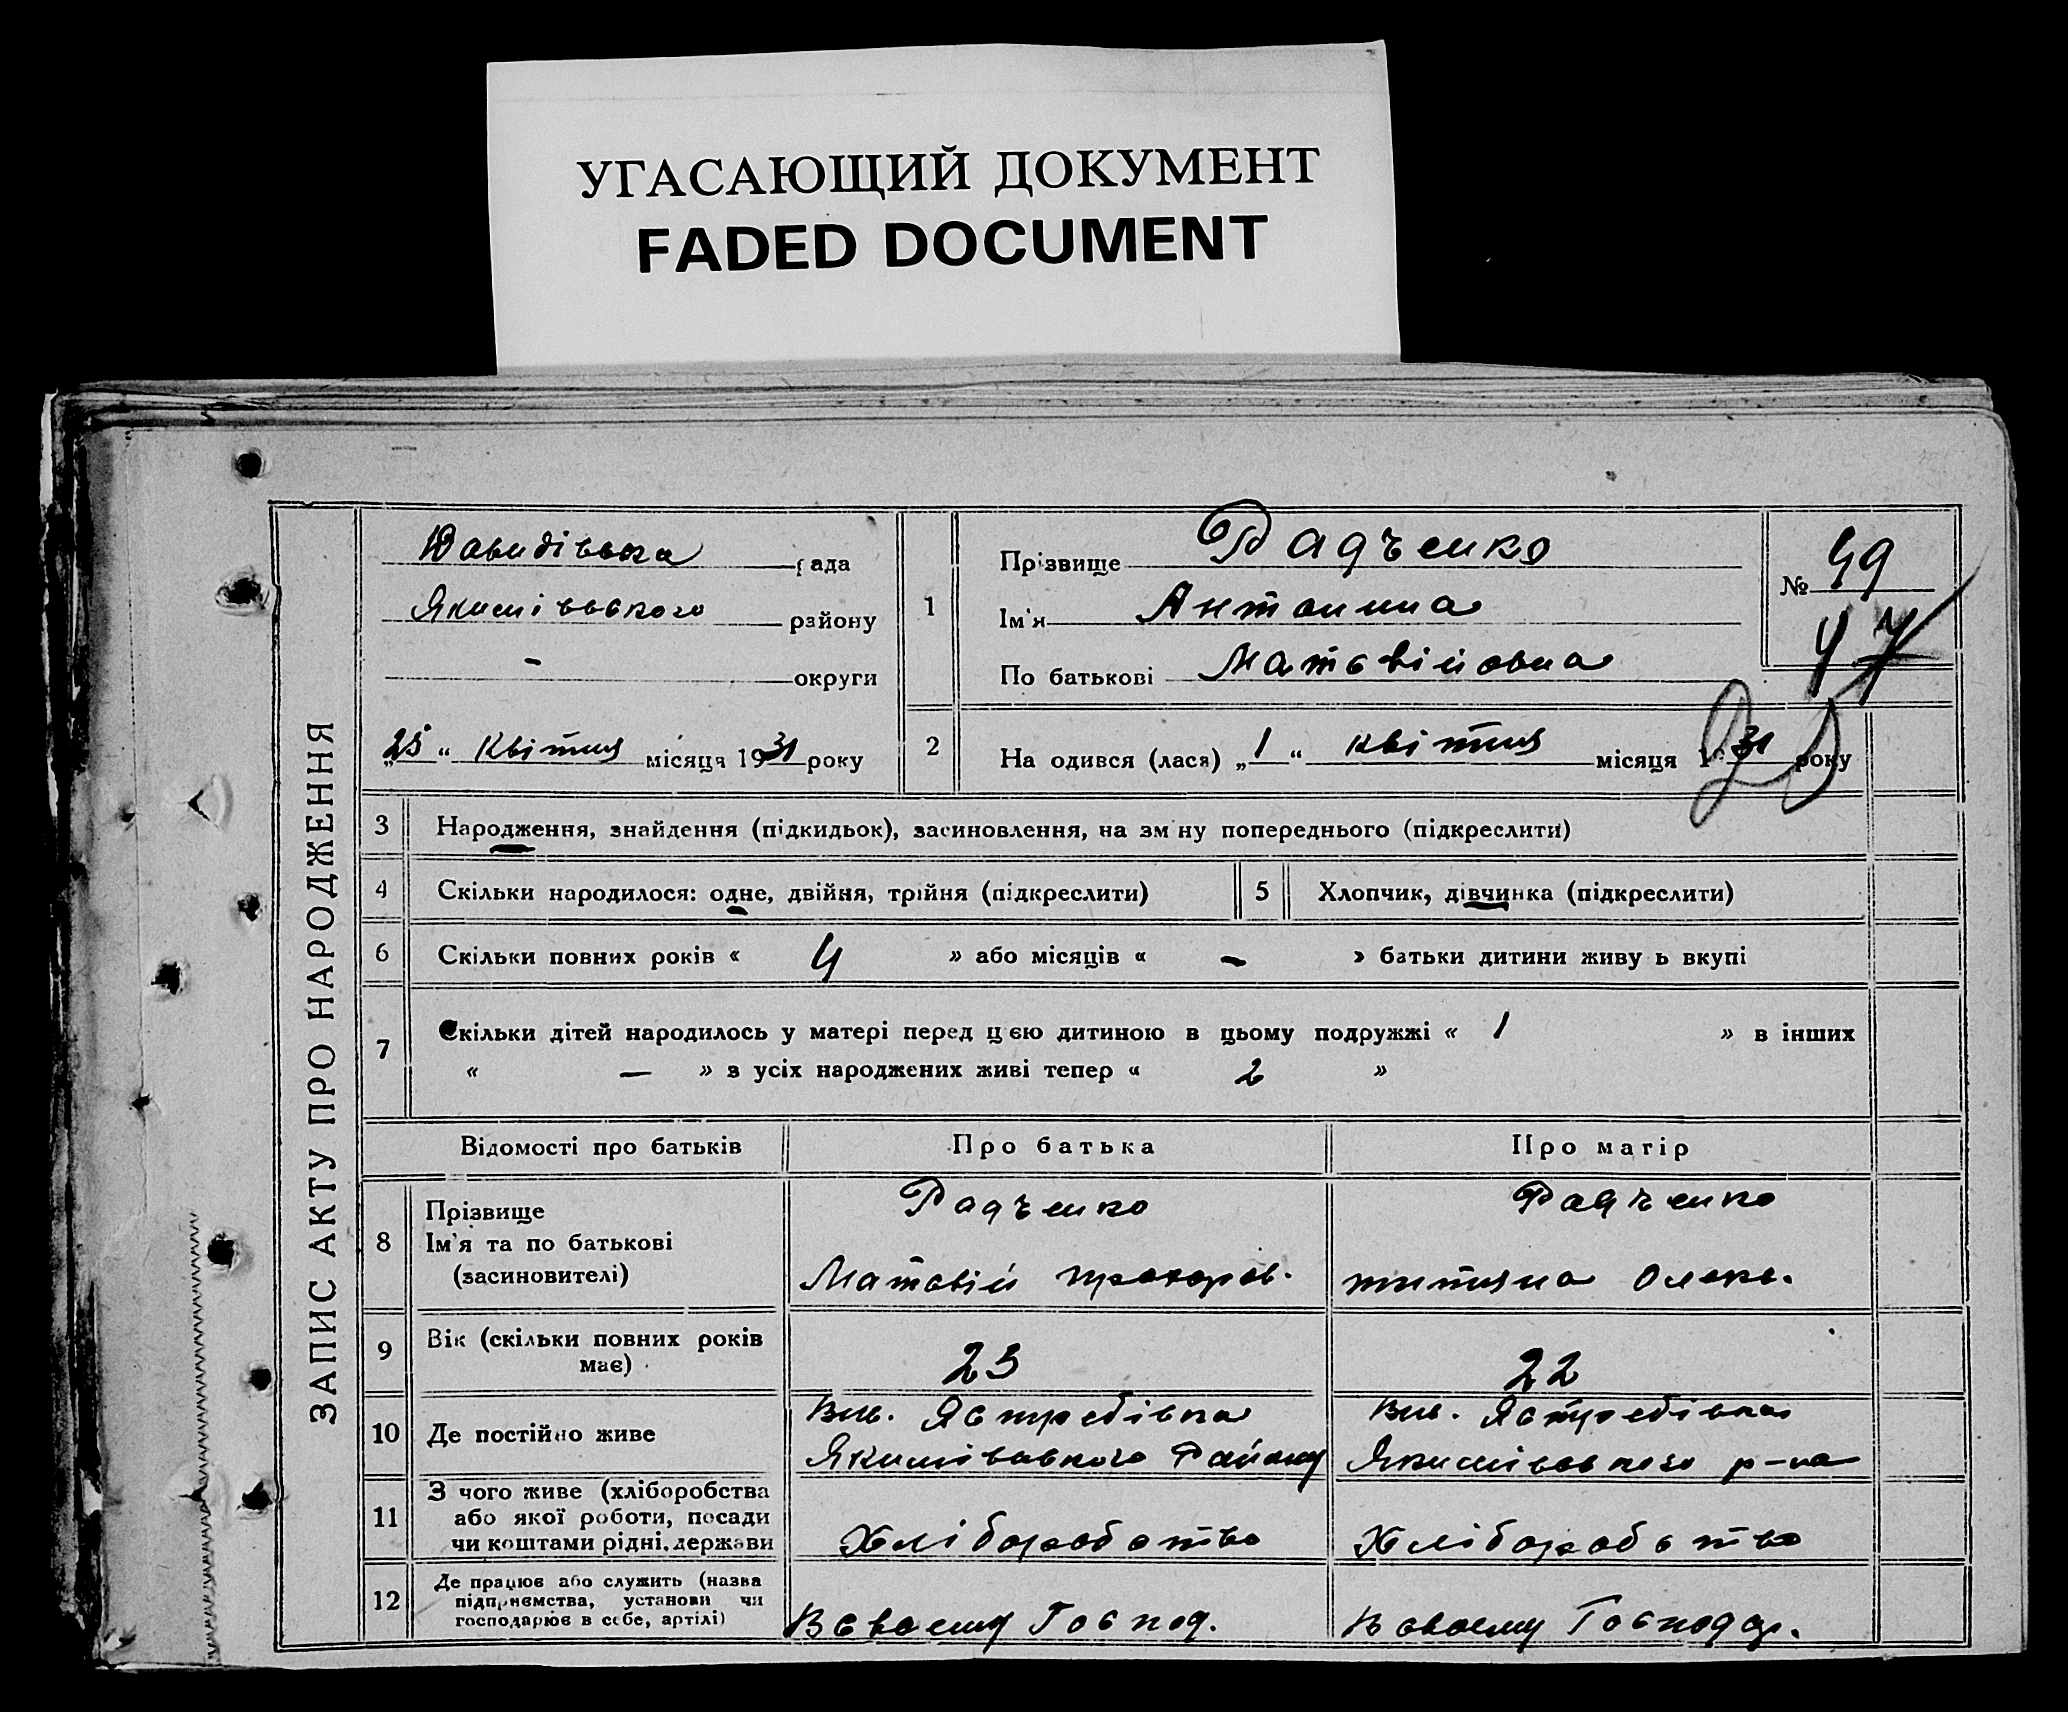 УГАСАЮЩИЙ ДОКУМЕНТ
FADED DOCUMENT
ЗАПИС АКТУ ПРО НАРОДЖЕННЯ
Давидівська рада
Якимівського району
- округи
„25“ Квітня місяця 1931 року
1
Прізвище Радченко
Ім'я Антонина
По батькові Матвійовна
№ 49
47
2
На одився (лася) „1“ квітня місяця 1 31 року
3 Народження, знайдення (підкидьок), засиновлення, на зм ну попереднього (підкреслити)
4 Скільки народилося: одне, двійня, трійня (підкреслити)
5 Хлопчик, дівчинка (підкреслити)
6 Скільки повних років « 4 » або місяців « - » батьки дитини живу ь вкупі
7 Скільки дітей народилось у матері перед цією дитиною в цьому подружжі « 1 » в інших
« — » з усіх народжених живі тепер « 2 »
Відомості про батьків Про батька Про матір
8 Прізвище
Ім'я та по батькові
(засиновителі)
Радченко
Матвій Прохоров.
Радченко
титяна Олекс.
9 Вік (скільки повних років
має)
23
22
10 Де постійно живе
Вис. Ястребівка
Якимівського Району
Вис. Ястребівка
Якимівського р-на
11 З чого живе (хліборобства
або якої роботи, посади
чи коштами рідні, держави
Хліборобство
Хліборобство
12 Де працює або служить (назва
підприємства, установи чи
господарює в себе, артілі)
В своєму Господ.
В своєму Господар.